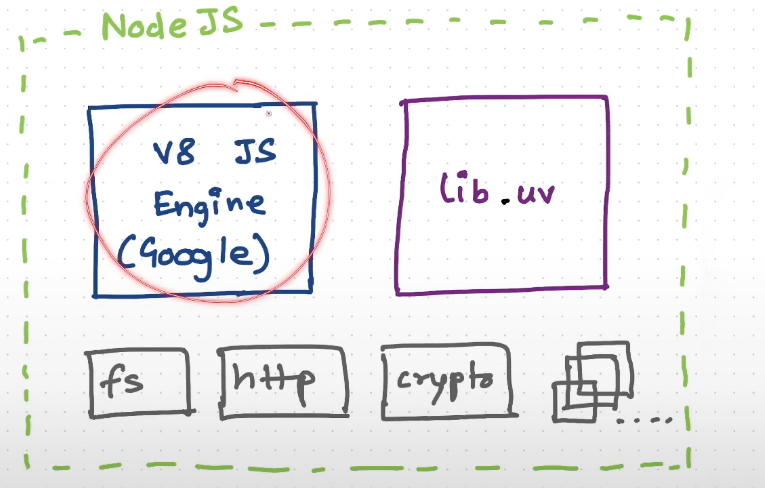 Node JS
V8 JS
Engine
(Google)
lib.uv
fs
http
crypto
.....